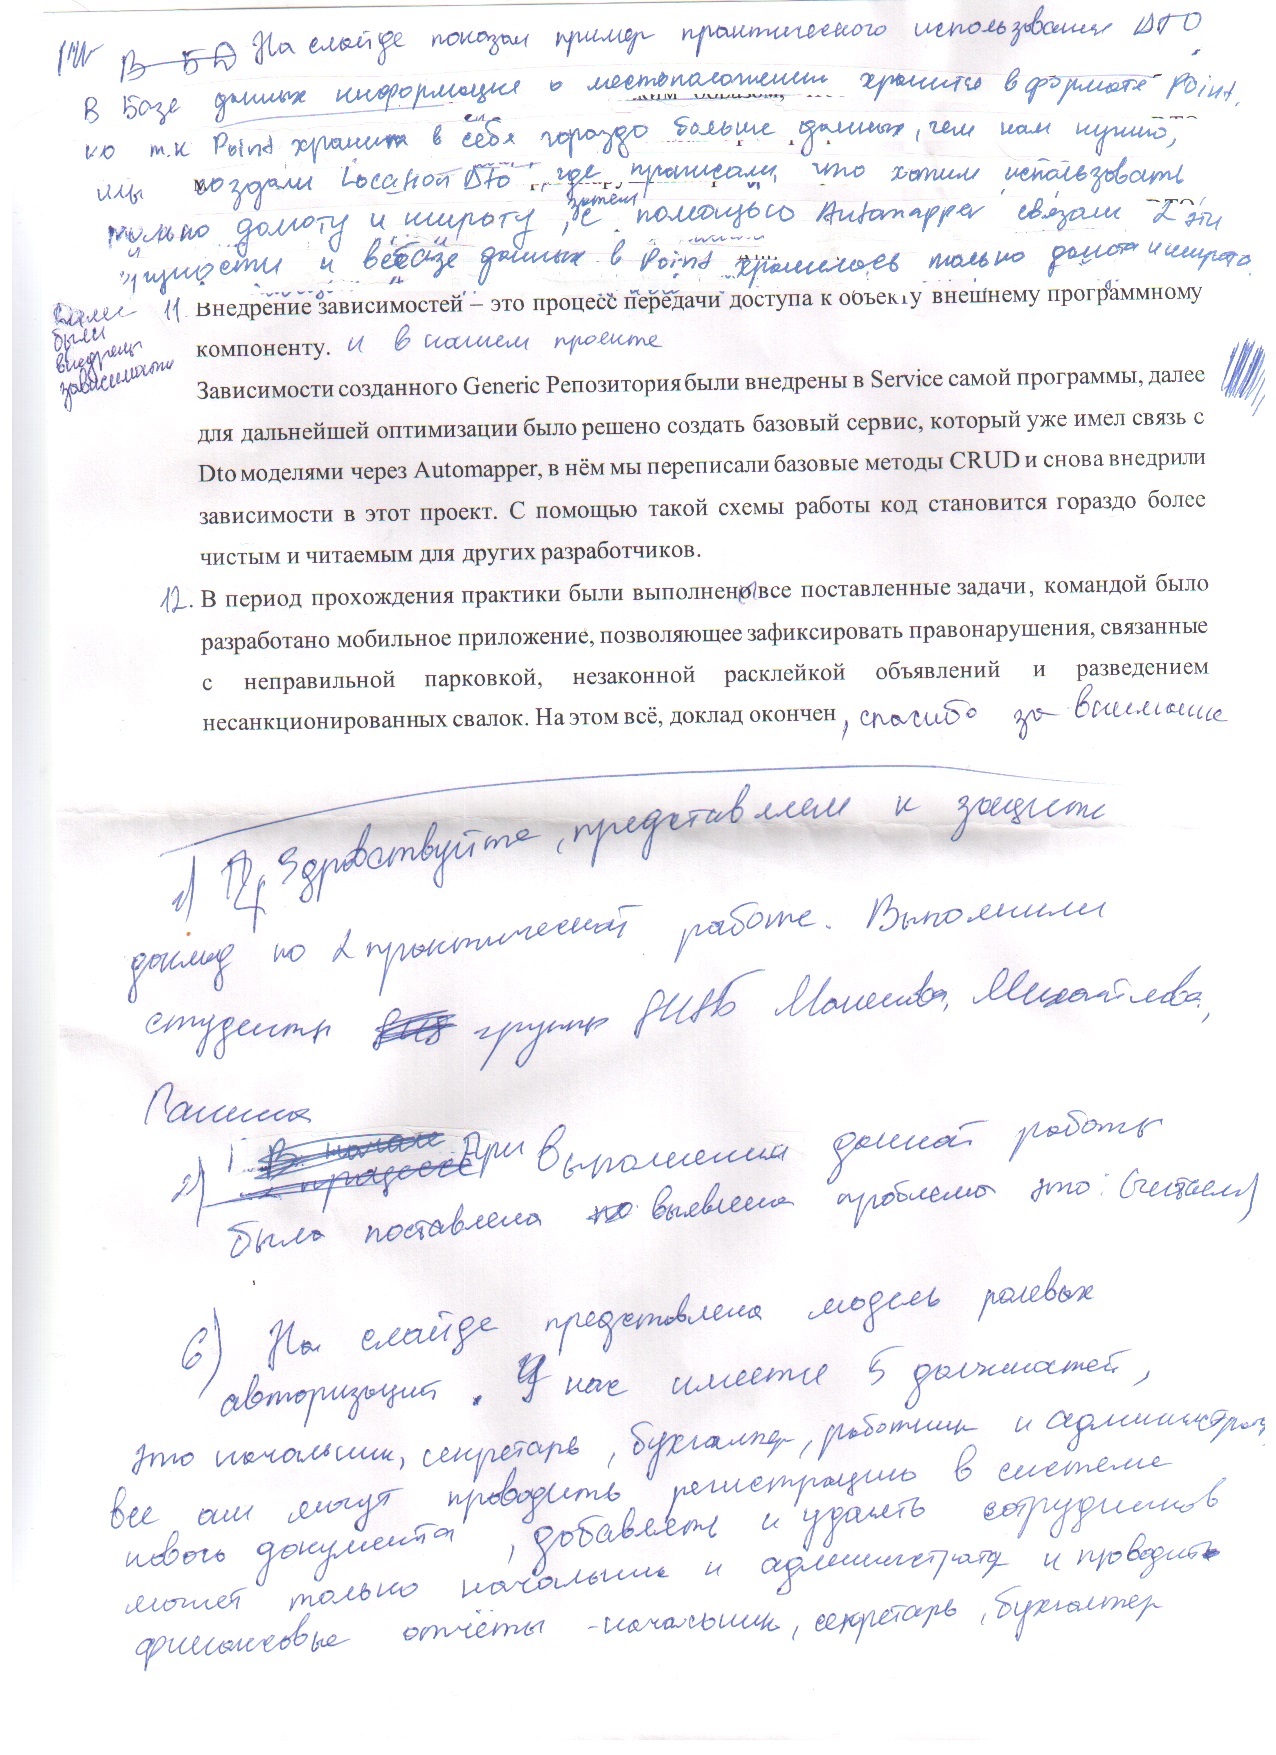 На слайде показан пример практического использования DTO
В Базе данных информация о местоположении хранится в формате Point,
но т.к Point хранит в себя гораздо больше данных, чем нам нужно,
мы создали LocationDto, где прописали, что хотим использовать
только долготу и широту, затем с помощью Automapper связали 2 эти
сущности и в базе данных в Point хранилось только долгота и широта.
Далее
были
внедрены
зависимости
11. Внедрение зависимостей – это процесс передачи доступа к объекту внешнему программному
компоненту. и в нашем проекте
Зависимости созданного Generic Репозитория были внедрены в Service самой программы, далее
для дальнейшей оптимизации было решено создать базовый сервис, который уже имел связь с
Dto моделями через Automapper, в нём мы переписали базовые методы CRUD и снова внедрили
зависимости в этот проект. С помощью такой схемы работы код становится гораздо более
чистым и читаемым для других разработчиков.
12. В период прохождения практики были выполнены все поставленные задачи, командой было
разработано мобильное приложение, позволяющее зафиксировать правонарушения, связанные
с неправильной парковкой, незаконной расклейкой объявлений и разведением
несанкционированных свалок. На этом всё, доклад окончен, спасибо за внимание
1) Здравствуйте, представляем к защите
доклад по 2 практической работе. Выполнили
студенты группы Михайлова,
2) При выполнении данной работы
была поставлена выявлена проблема это: (читаем)
6) На слайде представлена модель ролевых
авторизаций. У нас имеется 5 должностей,
это начальник, секретарь, бухгалтер, работник и администратор
все они могут проводить регистрацию в системе
нового документа, добавлять и удалять сотрудников
может только начальник и администратор и проводить
финансовые отчёты - начальник, секретарь, бухгалтер